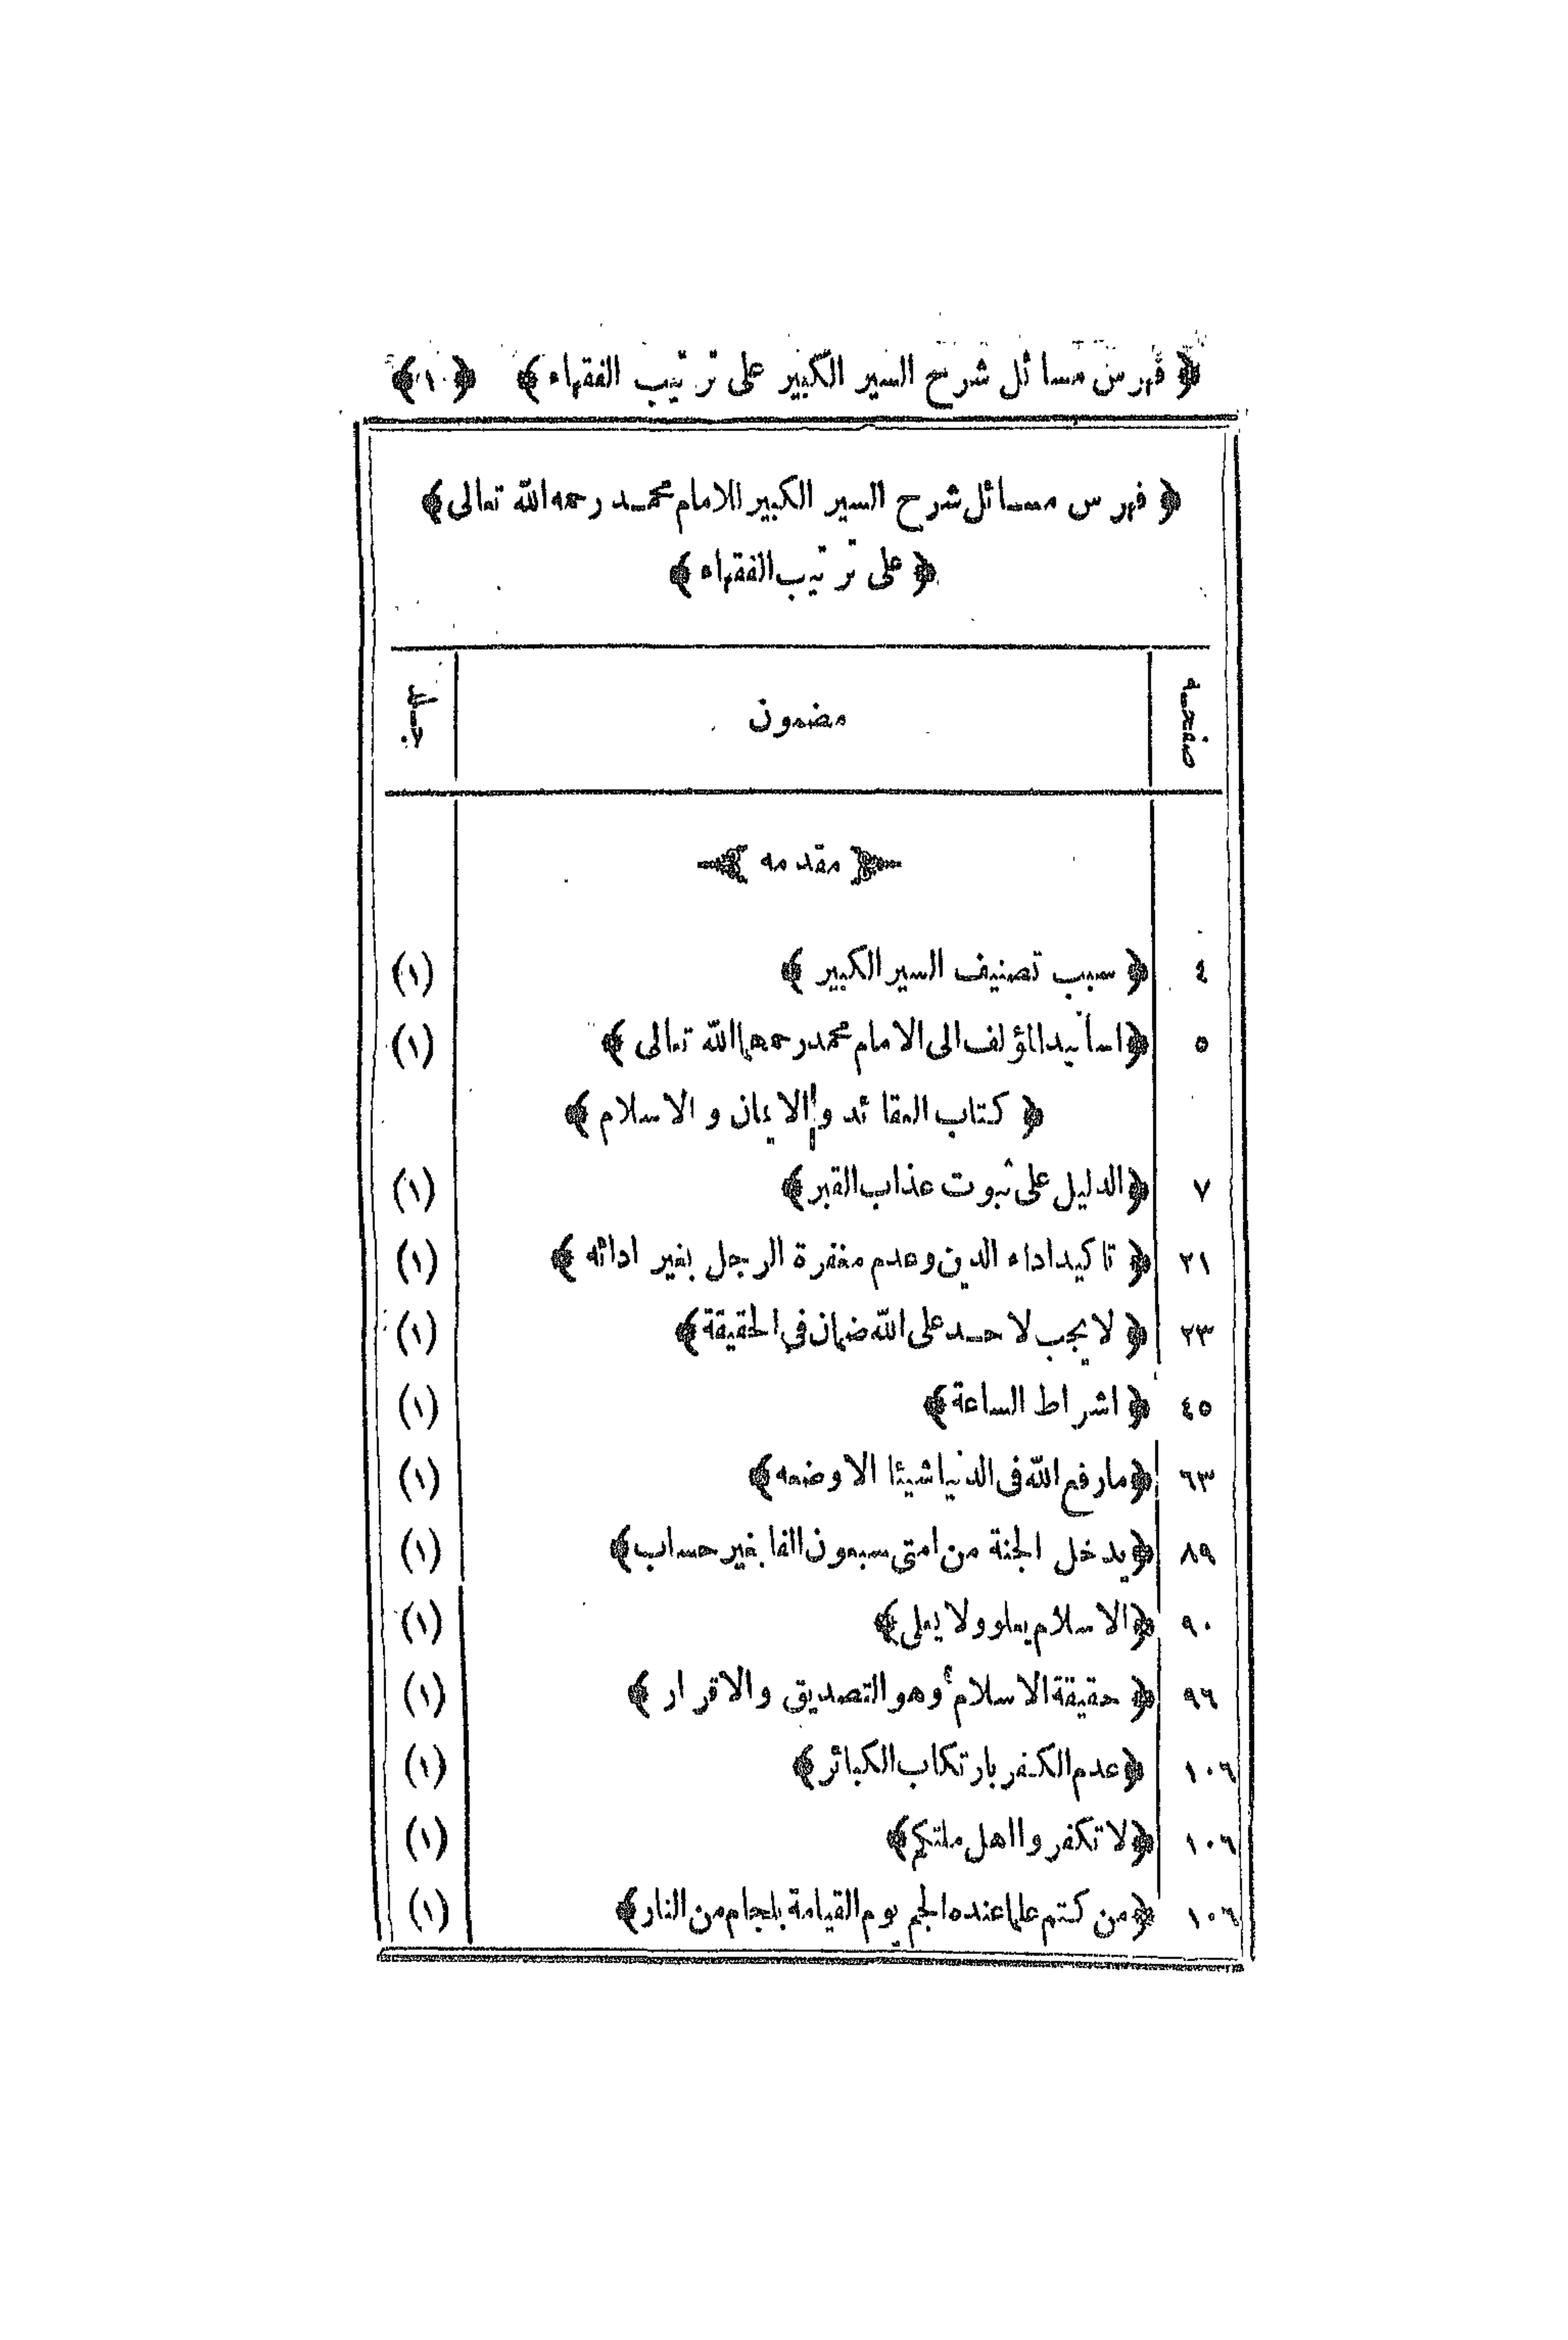 ﴿ فهرس مسائل شرح السير الكبير على ترتيب الفقهاء ﴾ ﴿ ١ ﴾
﴿ فهرس مسائل شرح السير الكبير للامام محمد رحمه الله تعالى ﴾
﴿ على ترتيب الفقهاء ﴾
صفحه مضمون جلد
﴿ مقدمه ﴾
٤ ﴿ سبب تصنيف السير الكبير ﴾ (١)
٥ ﴿ اسانيد المؤلف الى الامام محمد رحمهما الله تعالى ﴾ (١)
﴿ كتاب العقائد والايمان و الاسلام ﴾
٧ ﴿ الدليل على ثبوت عذاب القبر ﴾ (١)
٢١ ﴿ تاكيد اداء الدين وعدم مغفرة الرجل بغير ادائه ﴾ (١)
٢٣ ﴿ لا يجب لاحد على الله ضمان في الحقيقة ﴾ (١)
٤٥ ﴿ اشراط الساعة ﴾ (١)
٦٣ ﴿ مارفع الله فى الدنيا شيئا الا وضعه ﴾ (١)
٨٩ ﴿ يدخل الجنة من امتى سبعون الفا بغير حساب ﴾ (١)
٩٠ ﴿ الاسلام يعلو ولا يعلى ﴾ (١)
٩٦ ﴿ حقيقة الاسلام وهو التصديق والاقرار ﴾ (١)
١٠٦ ﴿ عدم الكفر بارتكاب الكبائر ﴾ (١)
١٠٦ ﴿ لا تكفروا اهل ملتكم ﴾ (١)
١٠٦ ﴿ من كتم علما عنده الجم يوم القيامة بلجام من النار ﴾ (١)